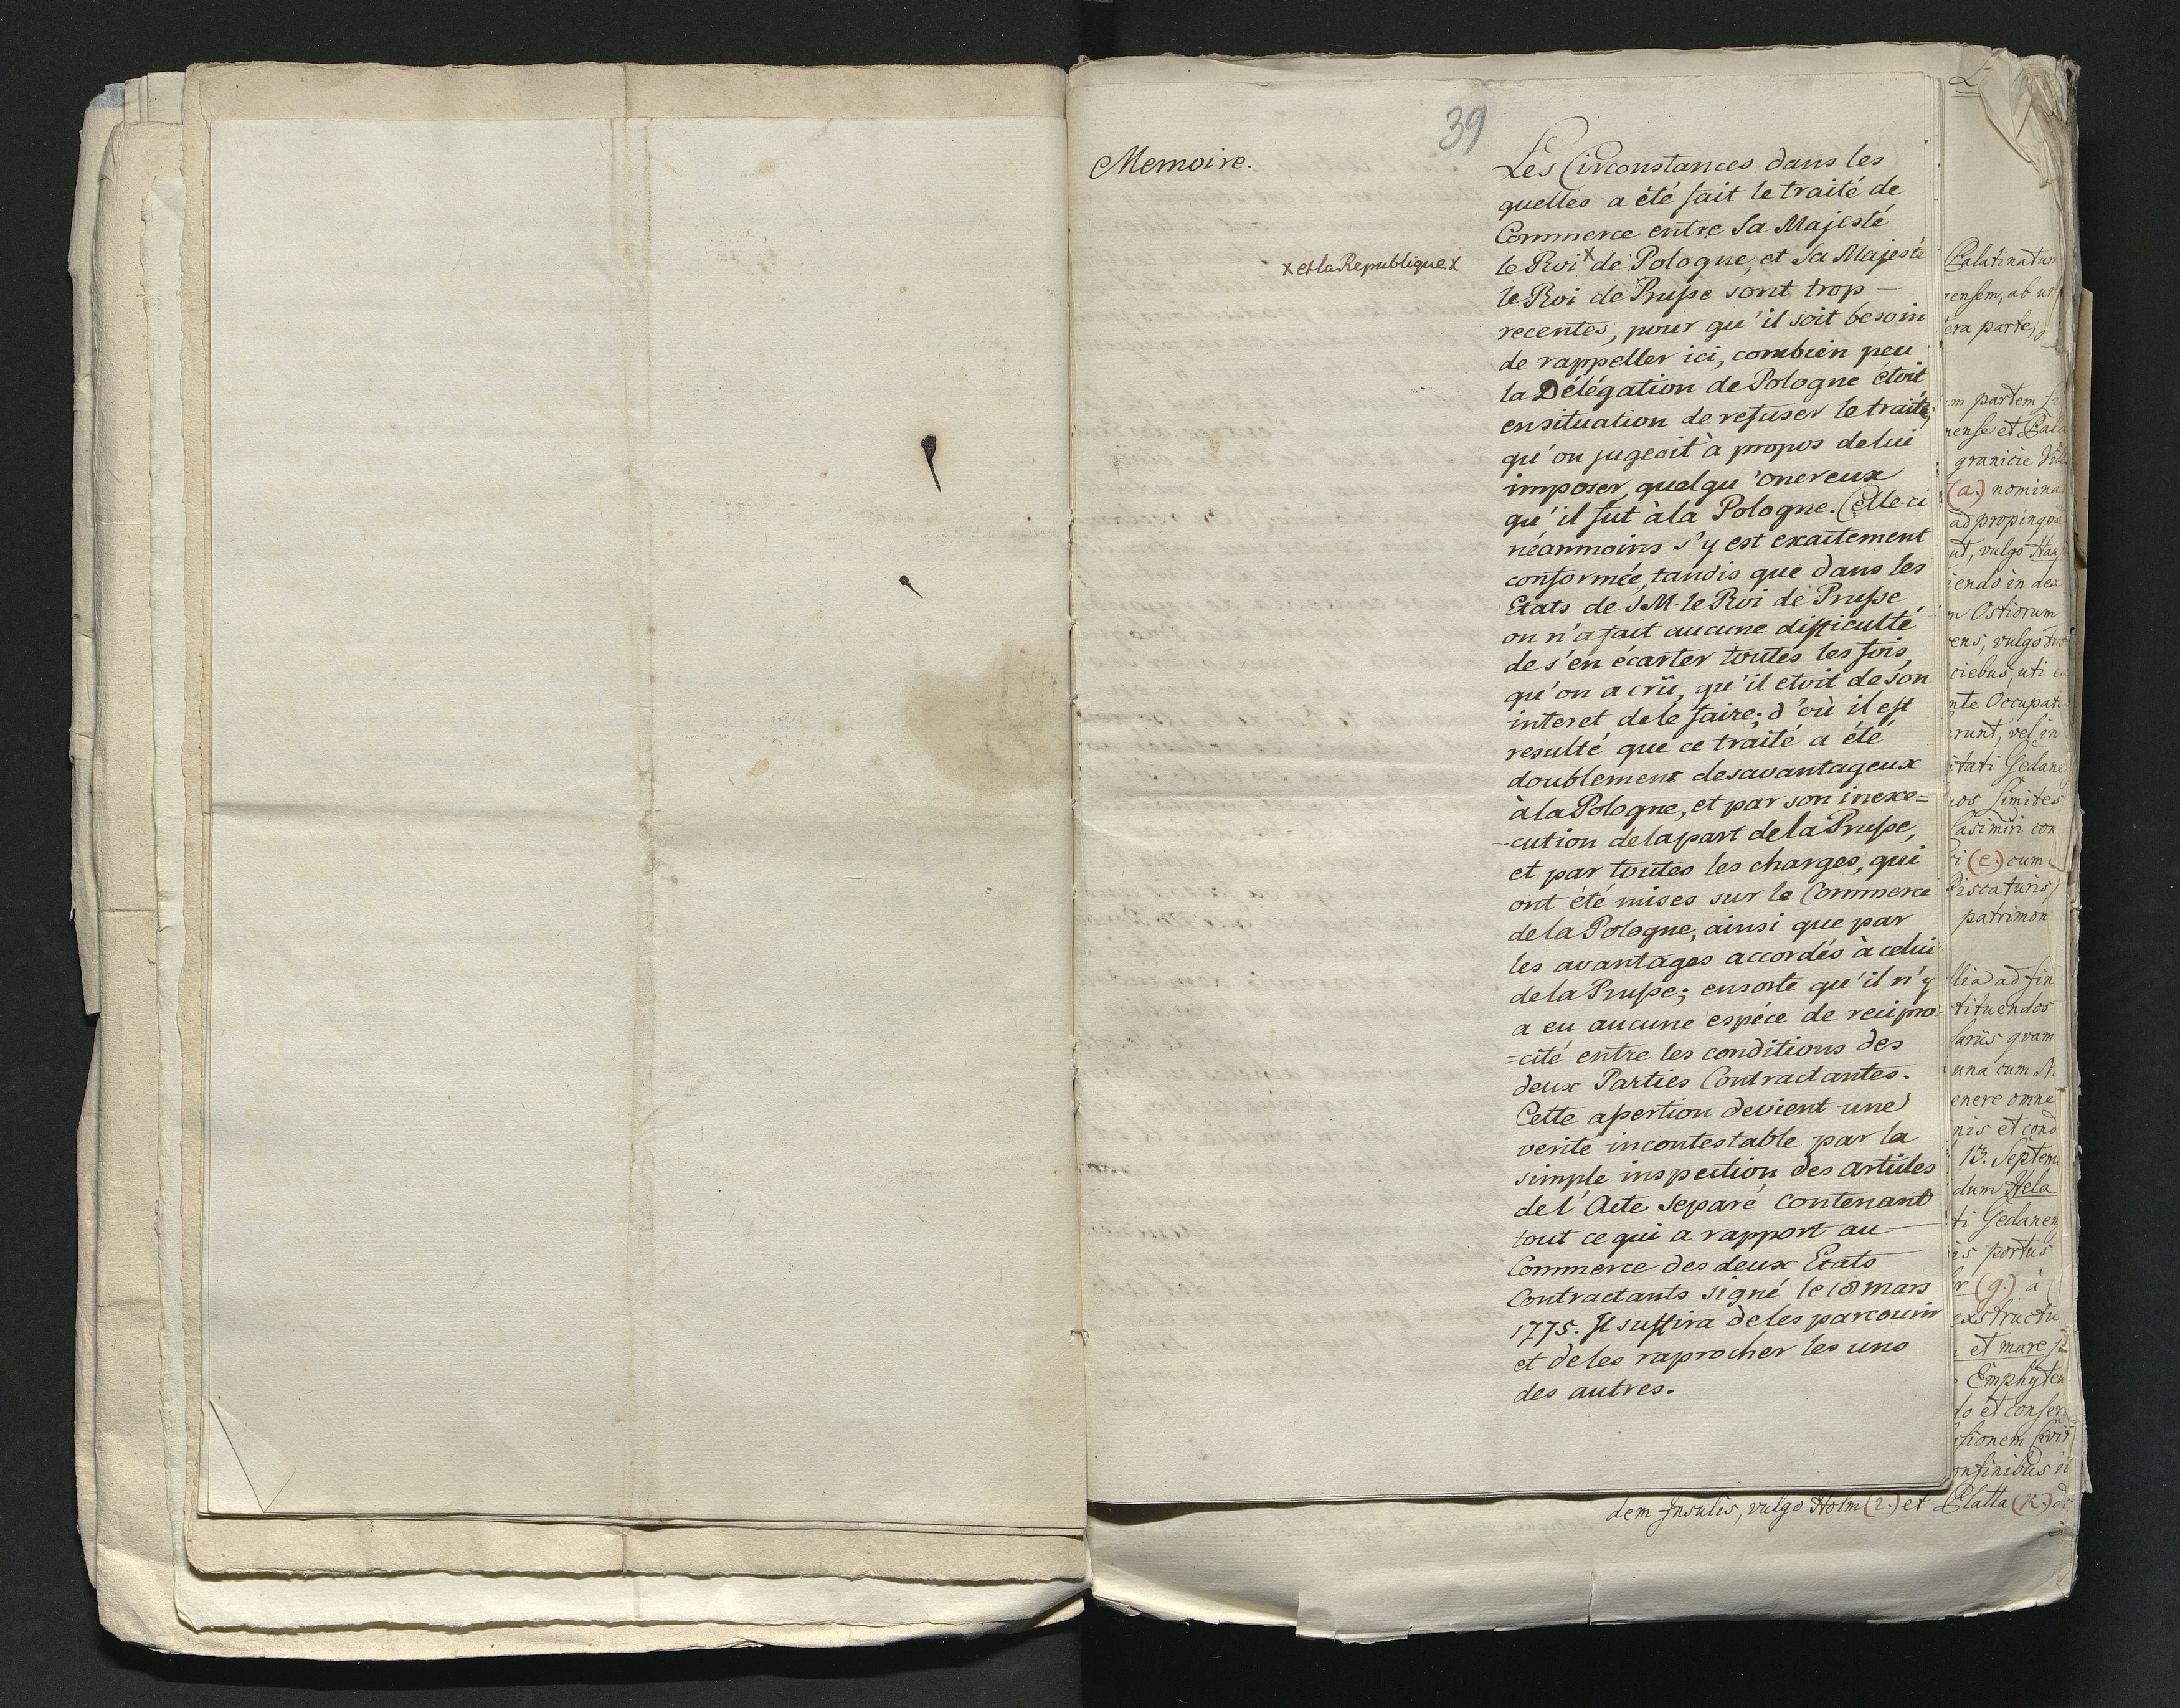 39
Memoire.
Les Circonstances dans les
quelles a été fait le traité de
Commerce entre Sa Majesté
x et la Republique x
le Roi x de Pologne, et Sa Majesté
le Roi de Prusse sont trop
recentes, pour qu'il soit besoin
de rappeller ici, combien peu
la Délégation de Pologne étoit
en situation de refuser le traité,
qu'on jugeoit à propos de lui
imposer, quelqu'onereux
qu'il fut à la Pologne. Celle-ci
néanmoins s'y est exactement
conformée, tandis que dans les
Etats de S M. le Roi de Prusse
on n'a fait aucune difficulté
de s'en écarter toutes les fois,
qu'on a crû, qu'il etoit de son
interet de le faire; d'où il est
resulté que ce traité a été
doublement desavantageux
à la Pologne, et par son inexe=
-cution de la part de la Prusse,
et par toutes les charges, qui
ont été mises sur le Commerce
de la Pologne, ainsi que par
les avantages accordés à celui
de la Prusse; ensorte qu'il n'y
a eu aucune espéce de recipro-
=cité entre les conditions des
deux Parties Contractantes.
Cette assertion devient une
verité incontestable par la
simple inspection des articles
de l'Acte separé contenant
tout ce qui a rapport au
Commerce des deux Etats
Contractants signé le 18 mars
1775. Il suffira de les parcourir
et de les raprocher les uns
des autres.
Palatinatum
rensem, ab
era parte,
m partem
nense et
granicie
(a.) nomina
ad propinqva
ut, vulgo
iendo in dex
m Ostiorum
ens, vulgo
ciebus, uti
nte Occupat
runt, vel in
itati Gedane
os Limites
Casimiri con
i (e.) cum
Piscaturis,
patrimon
llia ad fin
tituendos
lariis qvam
una cum
enere omne
nis et cond
13. Septem
dum Hela
ti Gedanen
is portus
r (g.) à
exstructu
et mare
Emphyteu
do et conser
ssionem
onfinibus
dem Insulis, vulgo Holm (i.) et Platta (k.)